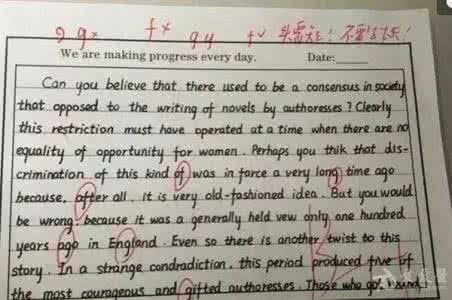 We are making progress every day. Date:
Can you believe that there used to be a consensus in society
that opposed to the writing of novels by authoresses? Clearly
this restriction must have operated at a time when there are no
equality of opportunity for women. Perhaps you thik that dis-
crimination of this kind of was in force a very long time ago
because, after all, it is very old-fashioned idea. But you would
be wrong, because it was a generally held vew only one hundred
years ago in England. Even so there is another twist to this
story. In a strange condradiction, this period produced five of
the most courageous and gifted authoresses. Those who got